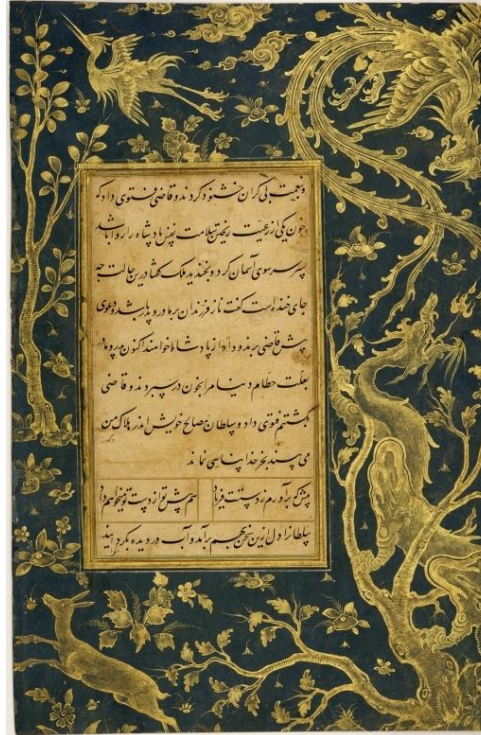 و نعمت بی کران خشنود کردند و قاضی فتوی داد که
خون یکی از رعیت ریختن سلامت نفس پادشاه را روا باشد
پسر سر سوی آسمان کرد و بخندید ملک گفتا درین حالت چه
جای خنده است گفت ناز فرزندان بر مادر و پدر باشد و دعوی
پیش قاضی برند و داد از پادشاه خواهند اکنون مادر و پدر
بعلت حطام دنیا مرا بخون در سپردند و قاضی
بکشتنم فتوی داد و سلطان مصالح خویش اندر هلاک من
می بیند بجز خدا پناهی نماند
پیش که برآورم ز دستت فریاد هم پیش تو از دست تو میخواهم داد
سلطانرا دل ازین سخن بهم برآمد و آب در دیده بگردانید